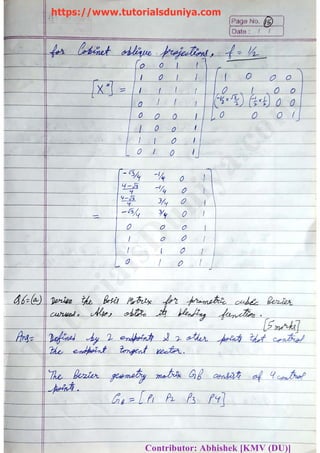 https://www.tutorialsduniya.com
Page No.
Date: / /
for Cabinet oblique projections, f = 1/2
[X*] = [0 0 1 1
1 0 1 1
1 1 1 1
0 1 1 1
0 0 0 1
1 0 0 1
1 1 0 1
0 1 0 1] [1 0 0 0
0 1 0 0
(-1/2 * √3/2) (-1/2 * 1/2) 0 0
0 0 0 1]
= [-√3/4 -1/4 0 1
4-√3/4 -1/4 0 1
4-√3/4 3/4 0 1
-√3/4 3/4 0 1
0 0 0 1
1 0 0 1
1 1 0 1
0 1 0 1]
Q6=(a) Derive the Basis Matrix for parametric cubic Bezier
curves. Also obtain its blending function.
[5 marks]
Ans= Defined by 2 endpoints & 2 other points that control
the endpoint tangent vector.
The Bezier geometry matrix GB consists of 4 control
points.
GB = [P1 P2 P3 P4]
Contributor: Abhishek [KMV (DU)]